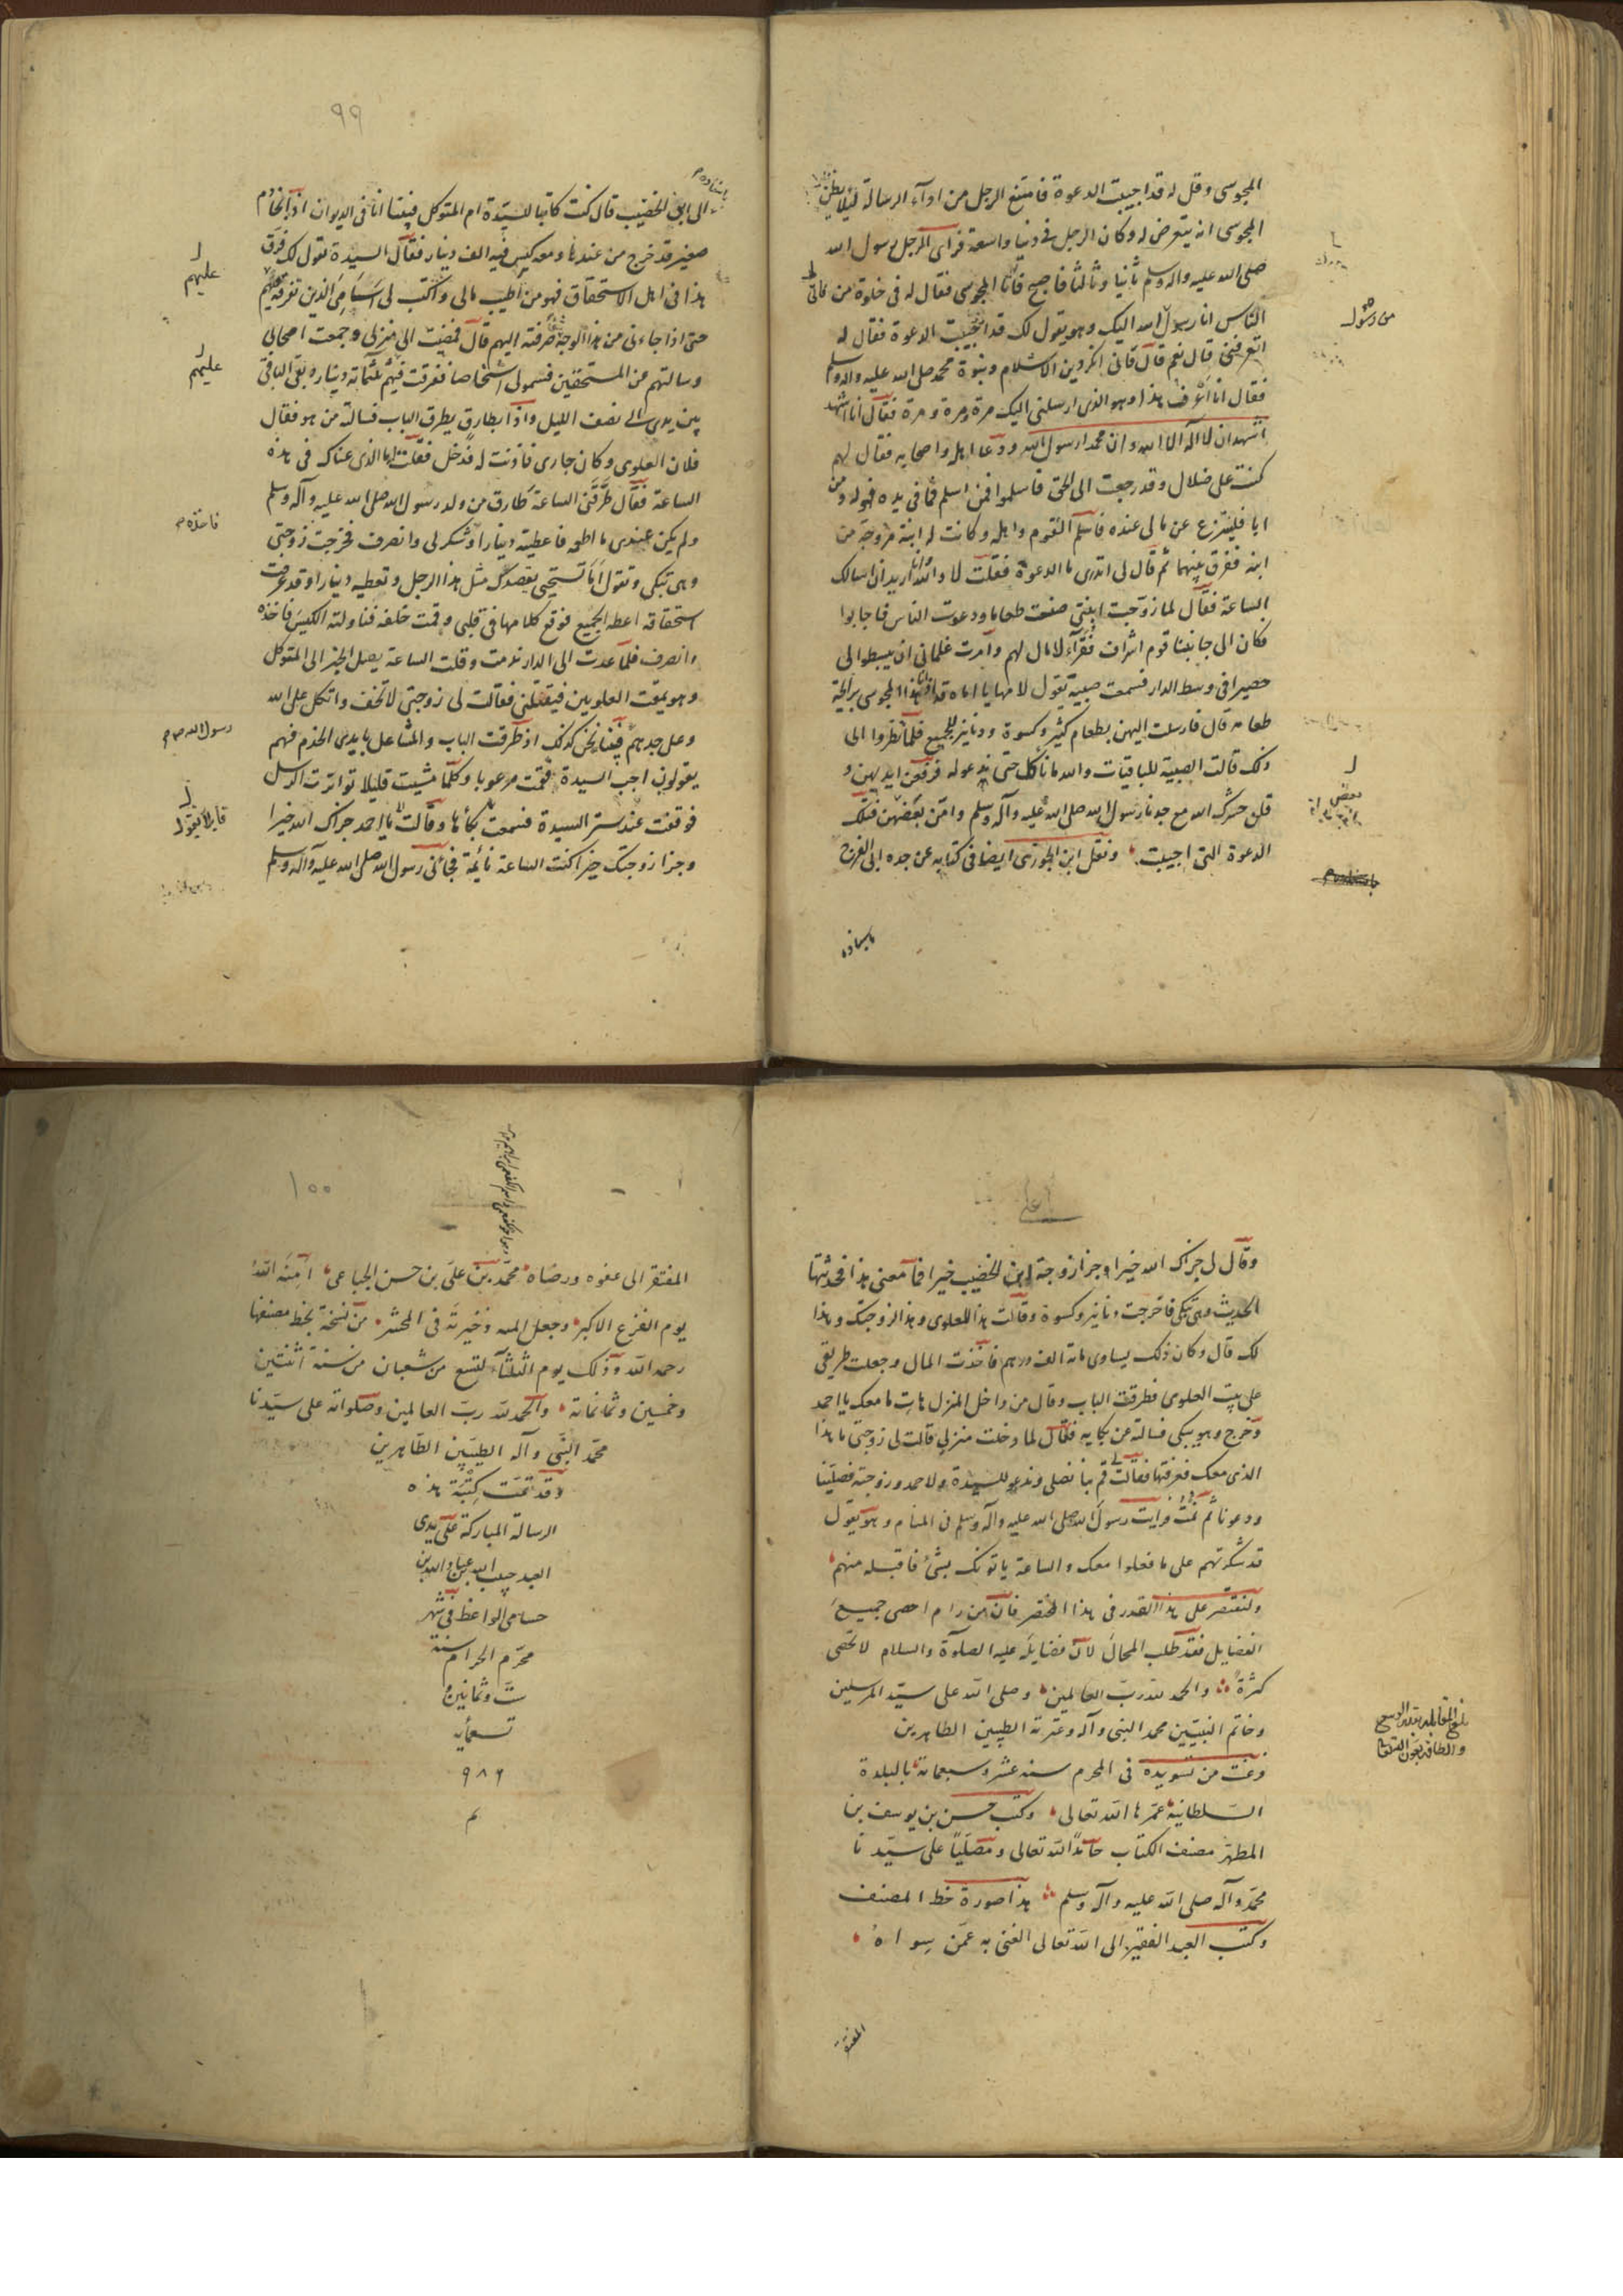 المجوسى وقل له قد اجيبت الدعوة فامتنع الرجل من اداء الرسالة لئلا يظن
المجوسى انه يتعرض له وكان الرجل فى دنيا واسعة فراى الرجل رسول الله
صلى الله عليه واله وسلم ثانيا وثالثا فاصبح فاتا المجوسى فقال له فى خلوة من
الناس انا رسول رسول الله اليك وهو يقول لك قد اجيبت الدعوة فقال له
اتعرفنى قال نعم قال فانى انكر دين الاسلام ونبوة محمد صلى الله عليه واله وسلم
فقال انا اعرف هذا وهو الذى ارسلنى اليك مرة ومرة ومرة فقال انا اشهد
اشهد ان لا اله الا الله وان محمدا رسول الله ودعا اهله واصحابه فقال لهم
كنت على ضلال وقد رجعت الى الحق فاسلموا فمن اسلم فما فى يده فهو له ومن
ابا فلينتزع عن مالى عنده فاسلم القوم واهله وكانت له ابنة مزوجة من
ابنه ففرق بينهما ثم قال لى اتدرى ما الدعوة فقلت لا والله انا اريد ان اسالك
الساعة فقال لما زوجت ابنتى صنعت طعاما ودعوت الناس فاجابوا
فكان الى جانبنا قوم اشراف فقراء لا مال لهم وامرت غلمانى ان يبسطوا لى
حصيرا فى وسط الدار فسمعت صبية تقول لامها يا اماه قد اذانا هذا المجوسى برائحة
طعامه قال فارسلت اليهن بطعام كثير وكسوة ودنانير للجميع فلما نظروا الى
ذلك قالت الصبية للباقيات والله ما ناكل حتى ندعو له فرفعن ايديهن و
قلن حشرك الله مع جدنا رسول الله صلى الله عليه وآله وسلم وامن بعضهن فتلك
الدعوة التى اجيبت ونقل ابن الجوزى ايضا فى كتابه عن جده ابى الفرج
باسناده
من رسول
باسناده
٩٩
الى ابن الخضيب قال كنت كاتبا للسيدة ام المتوكل فبينا انا فى الديوان اذا بخادم
صغير قد خرج من عندها ومعه كيس فيه الف دينار فقال السيدة تقول لك فرق
هذا فى اهل الاستحقاق فهو من اطيب مالى واكتب لى اسامى الذين تفرقه عليهم
حتى اذا جاءنى من هذا الوجه شئ صرفته اليهم قال فمضيت الى منزلى وجمعت اصحابى
وسالتهم عن المستحقين فسموا لى اشخاصا ففرقت فيهم ثلثمائة دينار وبقى الباقى
بين يدى الى نصف الليل واذا بطارق يطرق الباب فسالته من هو فقال
فلان العلوى وكان جارى فاذنت له فدخل فقلت له ما الذى عناك فى هذه
الساعة فقال طرقنى الساعة طارق من ولد رسول الله صلى الله عليه وآله وسلم
ولم يكن عندى ما اطعمه فاعطيته دينارا فشكر لى وانصرف فخرجت زوجتى
وهى تبكى وتقول اما تستحيى يقصدك مثل هذا الرجل وتعطيه دينارا وقد عرفت
استحقاقه اعطه الجميع فوقع كلامها فى قلبى وقمت خلفه فناولته الكيس فاخذه
وانصرف فلما عدت الى الدار ندمت وقلت الساعة يصل الخبر الى المتوكل
وهو يمقت العلويين فيقتلنى فقالت لى زوجتى لا تخف واتكل على الله
وعلى جدهم فبينا نحن كذلك اذ طرقت الباب والمشاعل بايدى الخدم فهم
يقولون اجب السيدة فقمت مرعوبا وكلما مشيت قليلا تواترت الرسل
فوقفت عند ستر السيدة فسمعت بكاءها وقالت يا احمد جزاك الله خيرا
وجزا زوجتك خيرا كنت الساعة نائمة فجاءنى رسول الله صلى الله عليه وآله وسلم
عليهم
عليهم
فاخذه
رسول الله
وقال لى جزاك الله خيرا وجزا زوجة ابن الخضيب خيرا فما معنى هذا فحدثتها
الحديث وهى تبكى فاخرجت دنانير وكسوة وقالت هذا للعلوى وهذا لزوجتك وهذا
لك قال وكان ذلك يساوى مائة الف درهم فاخذت المال وجعلت طريقى
على بيت العلوى فطرقت الباب وقال من داخل المنزل هات ما معك يا احمد
وخرج وهو يبكى فسالته عن بكايه فقال لما دخلت منزلى قالت لى زوجتى ما هذا
الذى معك فعرفتها فقالت لى قم بنا نصلى وندعو للسيدة ولاحمد وزوجته فصلينا
ودعونا ثم نمت فرايت رسول الله صلى الله عليه وآله وسلم فى المنام وهو يقول
قد شكرتهم على ما فعلوا معك والساعة ياتونك بشئ فاقبله منهم
ولنقتصر على هذا القدر فى هذا المختصر فان من رام احصى جميع
الفضايل فقد طلب المحال لان فضايله عليه الصلوة والسلام لا تحصى
كثرة والحمد لله رب العالمين وصلى الله على سيد المرسلين
وخاتم النبيين محمد النبى وآله وعترته الطيبين الطاهرين
فرغت من تسويده فى المحرم سنه عشر وسبعمائة بالبلدة
السلطانية عمرها الله تعالى وكتب حسن بن يوسف بن
المطهر مصنف الكتاب حامدا لله تعالى ومصليا على سيدنا
محمد وآله صلى الله عليه وآله وسلم هذا صورة خط المصنف
وكتب العبد الفقير الى الله تعالى الغنى به عمن سواه
المفتقر
بلغ المقابله بقدر الوسع
والطاقه بعون الله تعالى
١٠٠
المفتقر الى عفوه ورضاه محمد بن على بن حسن الجباعى امنه الله
يوم الفزع الاكبر وجعل امنه ذخيرته فى المحشر من نسخة بخط مصنفها
رحمه الله وذلك يوم الثلثاء لتسع من شعبان من سنة اثنتين
وخمسين وثمانمائة والحمد لله رب العالمين وصلواته على سيدنا
محمد النبى وآله الطيبين الطاهرين
وقد تمت كتبة هذه
الرسالة المباركة على يدى
العبد حبيب الله
حسامى الواعظ فى شهر
محرم الحرام سنة
ست وثمانين و
تسعمايه
٩٨٦
م